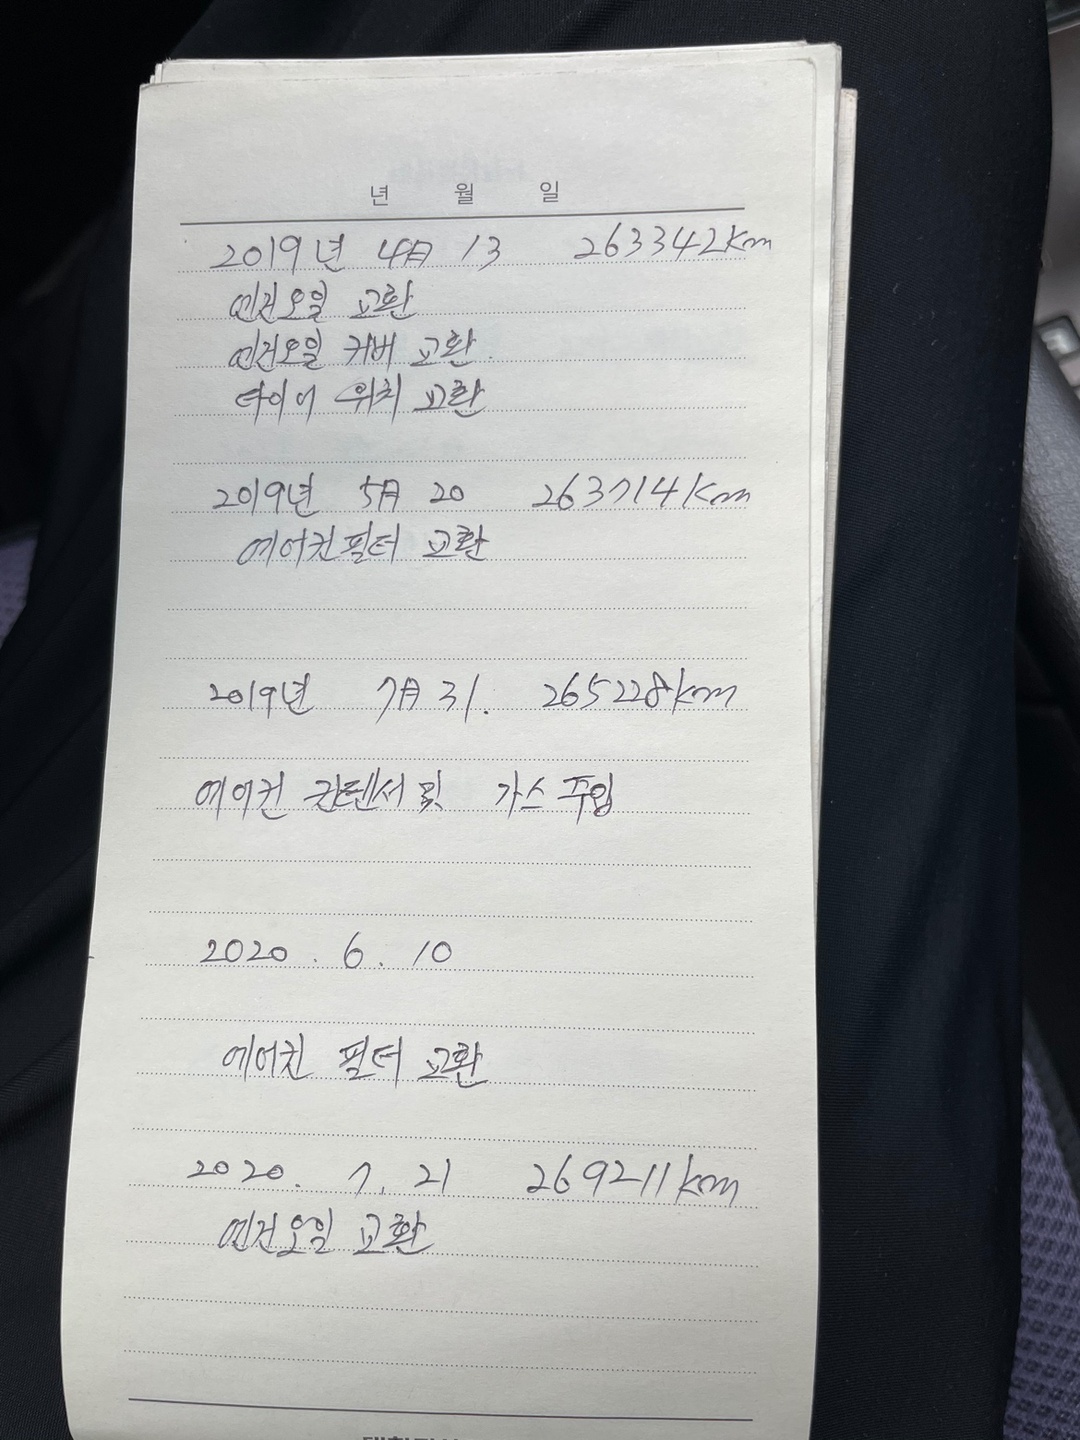 년 월 일
2019년 4月 13 263342km
엔진오일 교환
엔진오일 커버 교환.
타이어 위치 교환
2019년 5月 20 263714km
에어컨필터 교환
2019년 7月 31. 265228km
에어컨 컨덴서 및 가스 주입
2020. 6. 10
에어컨 필터 교환
2020. 7. 21 269211km
엔진오일 교환